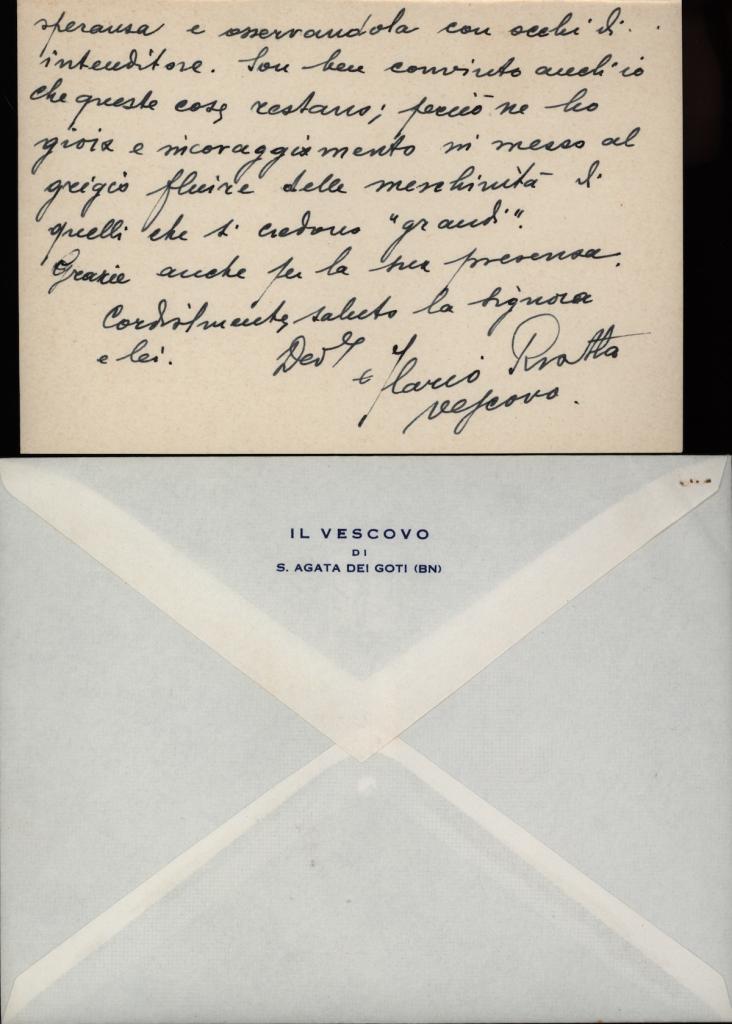 speranza e osservandola con occhi di
intenditore. Son ben convinto anch'io
che queste cose restano; perciò ne ho
gioia e incoraggiamento in mezzo al
grigio fluire delle meschinità di
quelli che si credono "grandi".
Grazie anche per la sua presenza.
Cordialmente saluto la signora
e lei. Dev.
+ Ilario Roatta
vescovo.
IL VESCOVO
DI
S. AGATA DEI GOTI (BN)